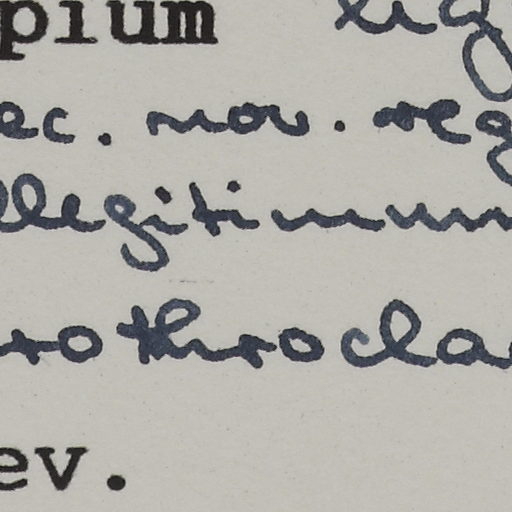 pium leg
ec. nov. reg
llegitimum
rothrocla
ev.